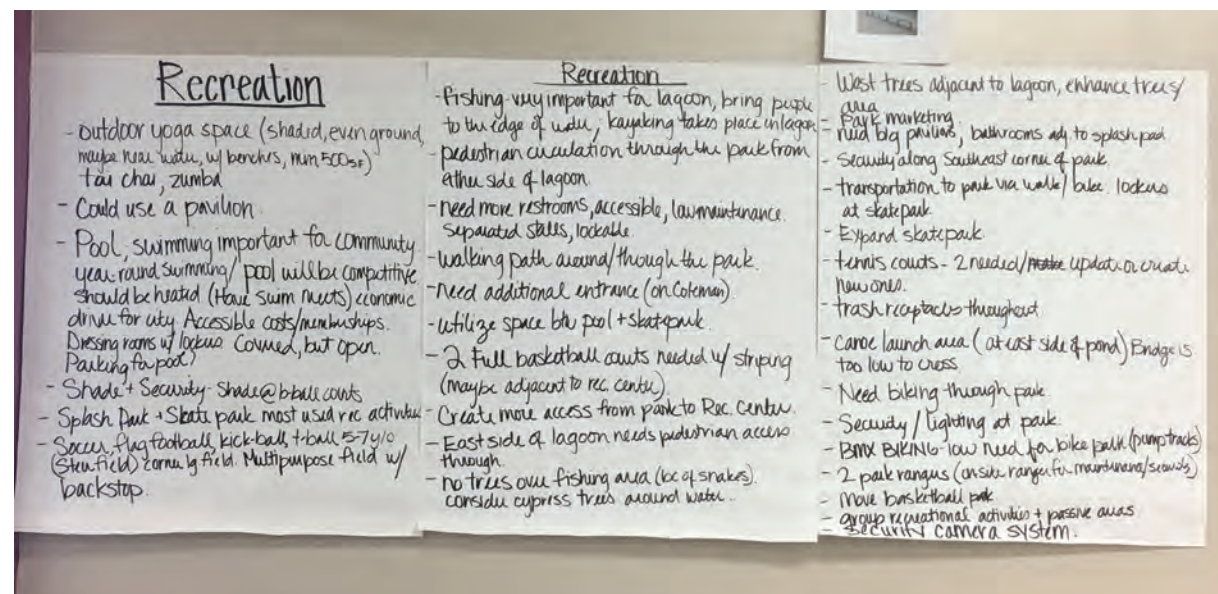 Recreation
- outdoor yoga space (shaded, even ground,
maybe near water, w/ benches, min 500SF)
tai chai, zumba
- Could use a pavilion.
- Pool, swimming important for community
year-round swimming/pool will be competitive
should be heated (Have swim meets) economic
driver for city. Accessible costs/memberships.
Dressing rooms w/ lockers Covered, but open.
Parking for pool?
- Shade + Security - Shade @ b-ball courts
- Splash Park + Skate park most used rec activities
- Soccer, flag football, kick-ball, t-ball 5-7 y/o
field) corner lg field. Multipurpose field w/
backstop.
Recreation
- fishing very important for lagoon, bring people
to the edge of water, kayaking takes place in lagoon
- pedestrian circulation through the park from
either side of lagoon.
- need more restrooms, accessible, low maintenance.
Separated stalls, lockable.
- walking path around/through the park.
- need additional entrance (on Coleman).
- utilize space btw pool + skatepark.
- 2 full basketball courts needed w/ striping
(maybe adjacent to rec. center).
- Create more access from park to Rec. Center.
- East side of lagoon needs pedestrian access
through.
- no trees over fishing area (bc of snakes).
consider cypress trees around water.
- Want trees adjacent to lagoon, enhance trees/
area
- Park marketing
- need big pavilions, bathrooms adj. to splash pad
- Security along Southeast corner of park.
- transportation to park via walk/bike. lockers
at skatepark
- Expand skatepark
- tennis courts - 2 needed/ update or create
new ones.
- trash receptacles throughout
- Canoe launch area (at east side of pond) Bridge is
too low to cross
- Need biking through park.
- Security / lighting at park.
- BMX BIKING - low need for bike path (pump tracks)
- 2 park rangers (onsite ranger for maintenance/security)
- move basketball park
- group recreational activities + passive areas
- Security camera system.